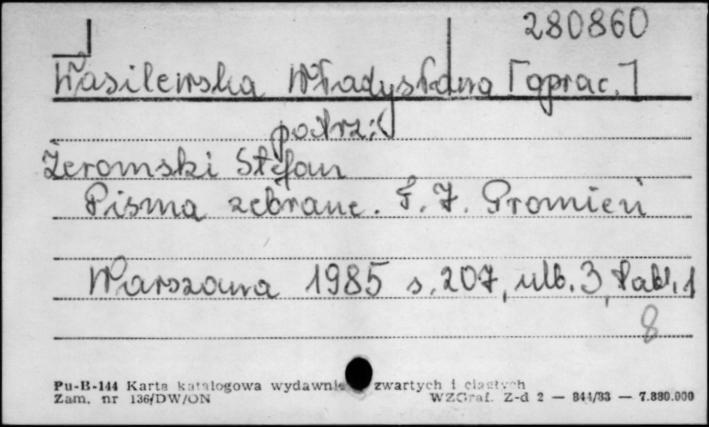 280860
Wasilewska Władysława [oprac.]
patrz:
Żeromski Stefan
Pisma zebrane. T. 7. Promień
Warszawa 1985 s. 207, ulb. 3, tabl. 1
8
Pu-B-144 Karta katalogowa wydawnic zwartych i ciągłych
Zam. nr 136/DW/ON WZGraf. Z-d 2 — 844/83 — 7.880.000